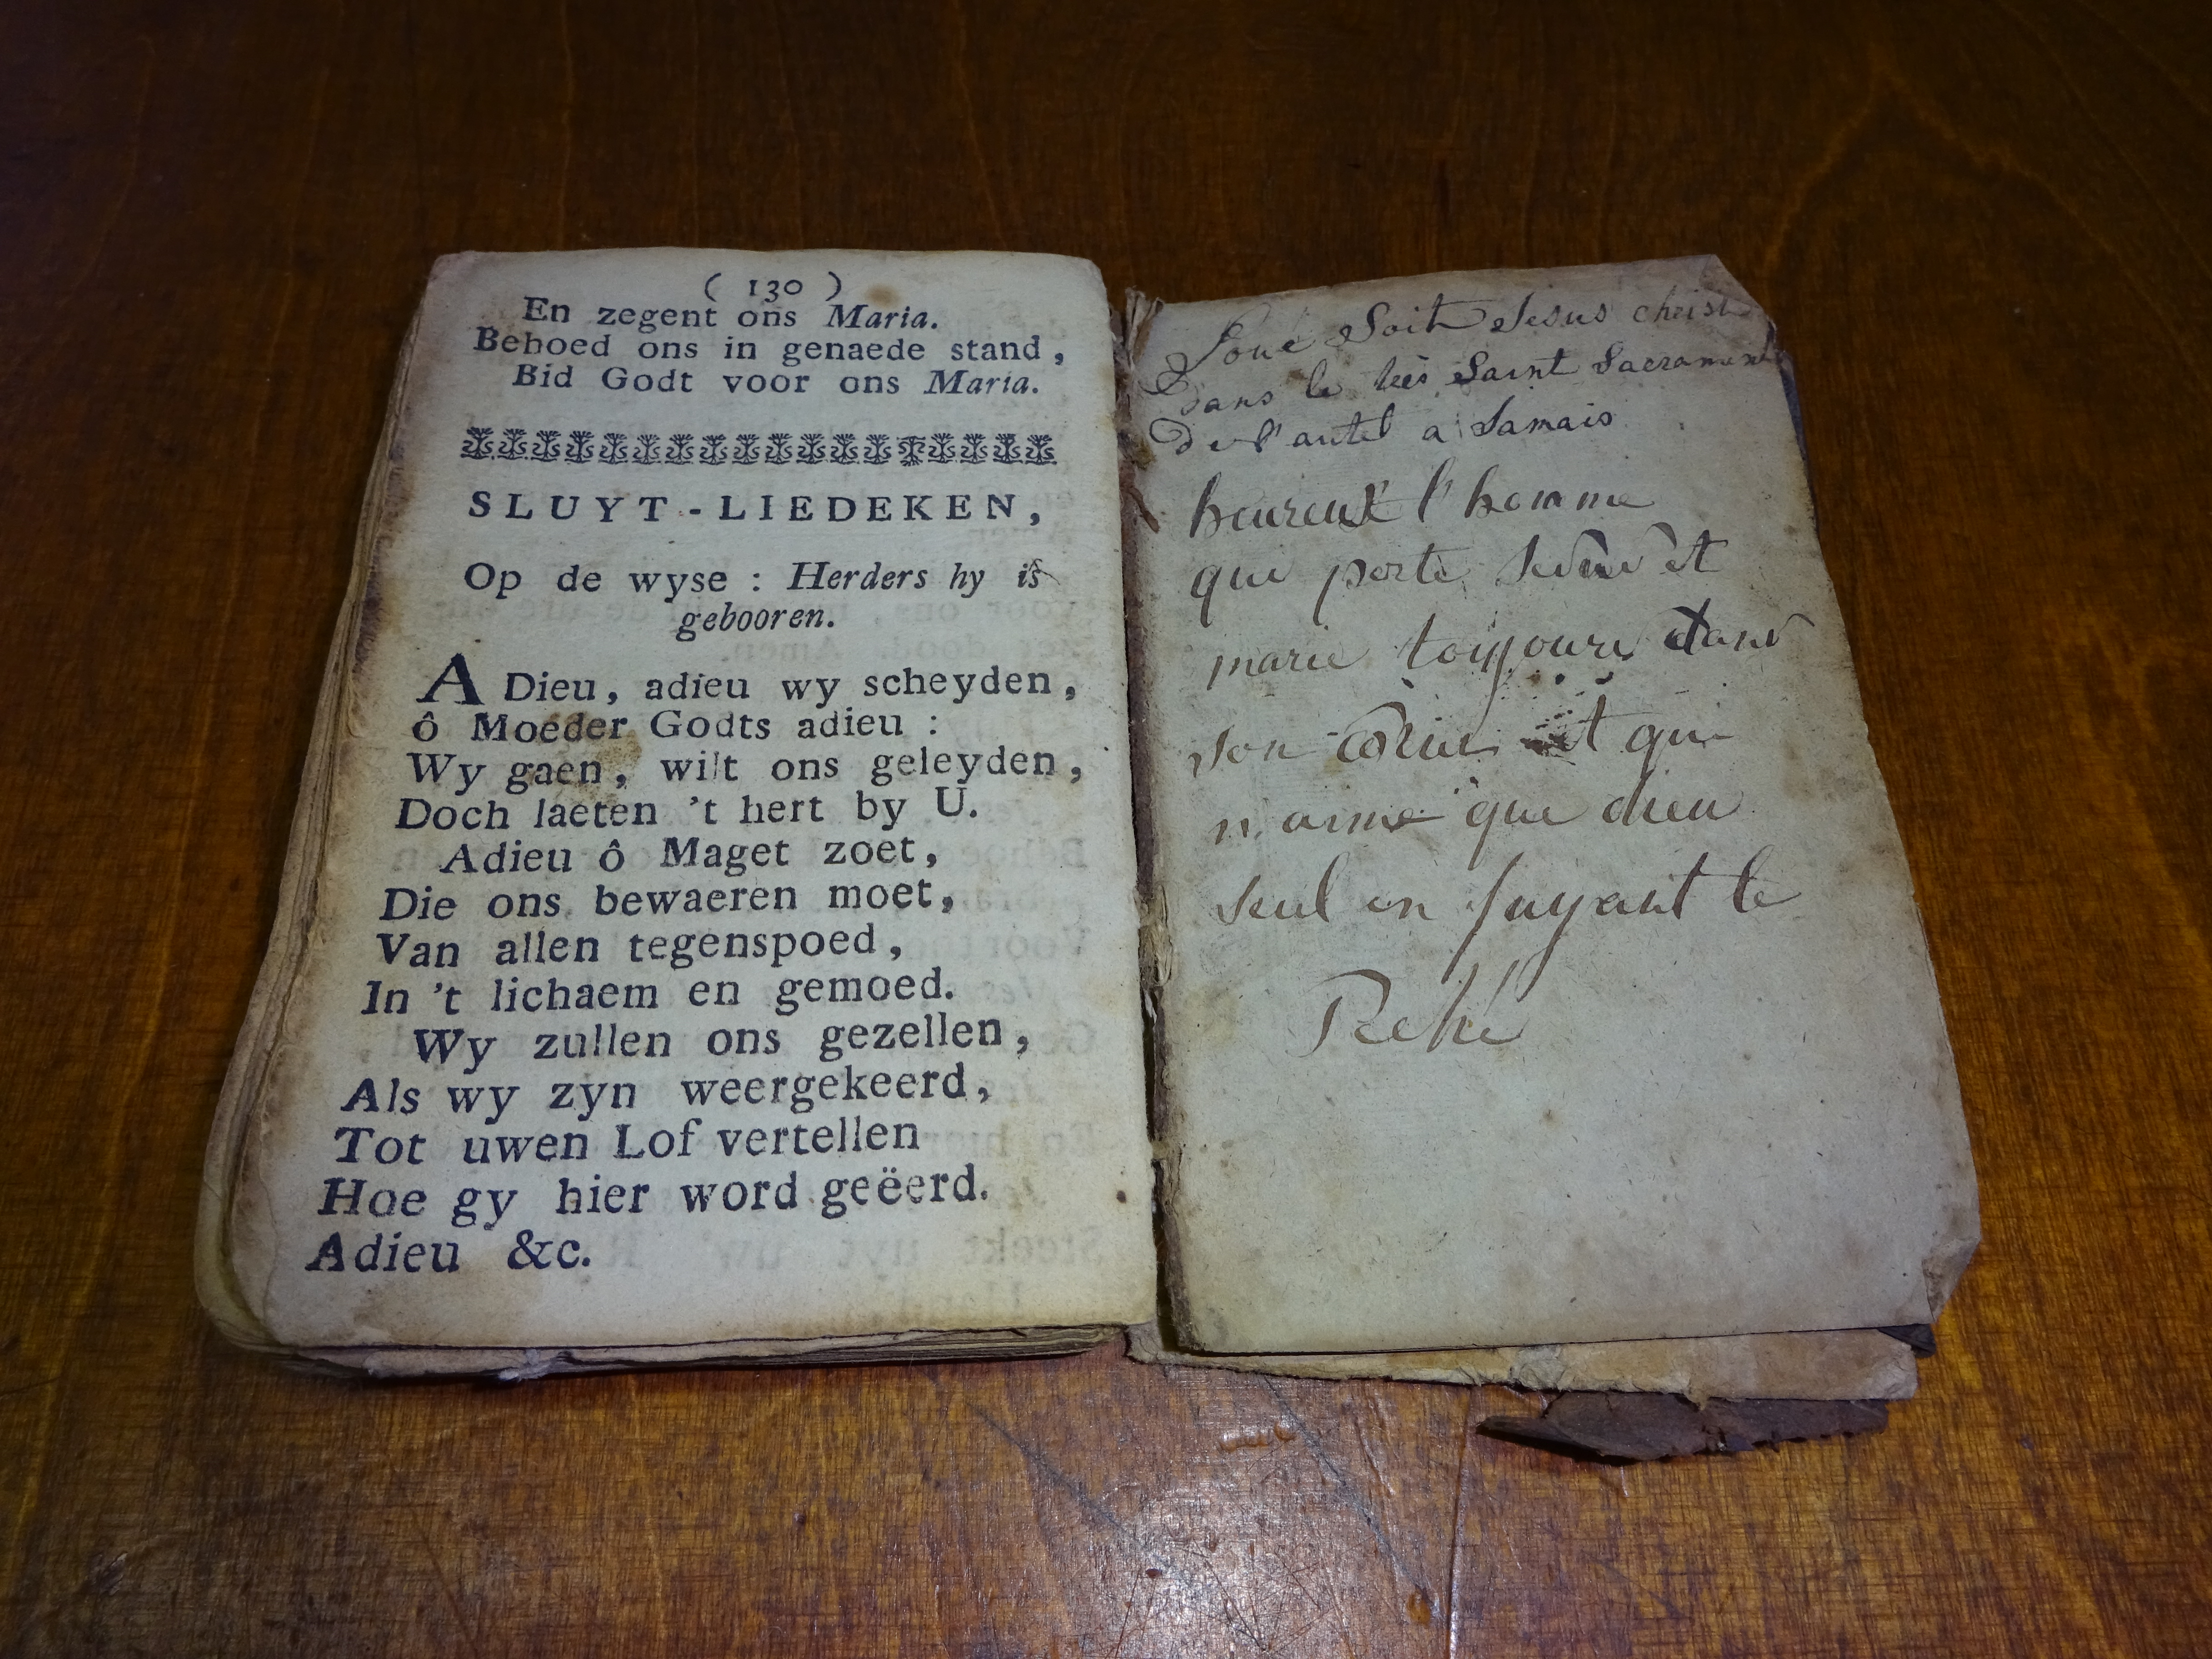 ( 130 )
En zegent ons Maria.
Behoed ons in genaede stand,
Bid Godt voor ons Maria.
SLUYT-LIEDEKEN,
Op de wyse : Herders hy is
gebooren.
ADieu, adieu wy scheyden,
ô Moeder Godts adieu :
Wy gaen, wilt ons geleyden,
Doch laeten 't hert by U.
Adieu ô Maget zoet,
Die ons bewaeren moet,
Van allen tegenspoed,
In 't lichaem en gemoed.
Wy zullen ons gezellen,
Als wy zyn weergekeerd,
Tot uwen Lof vertellen
Hoe gy hier word geëerd.
Adieu &c.
Loué Soit Jesus christ
Dans le Saint Sacrament
De l'autel a Jamais
heureux l'homme
qui porte et
marie toujours dans
son et qui
n'aime que dieu
seul en fuyant le